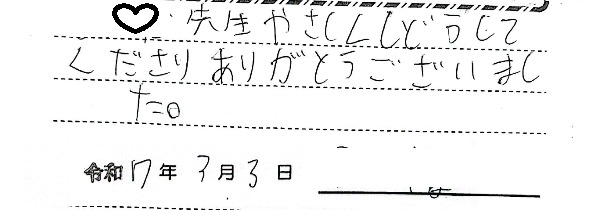 ♡・先生やさしくしどうして
くださりありがとうございまし
た。
令和7年3月3日